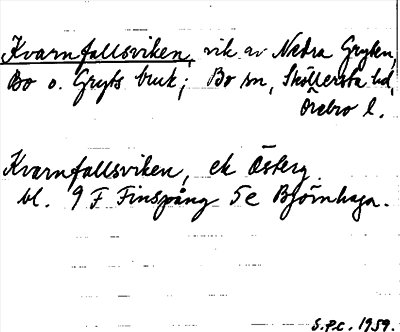 Kvarnfallsviken, vik av Nedra Gryten,
Bo o. Gryts bruk; Bo sn, Sköllersta hd,
Örebro l.
Kvarnfallsviken, ek Österg.
bl. 9 F Finspång 5e Björnhaga.
S.P.C. 1959.